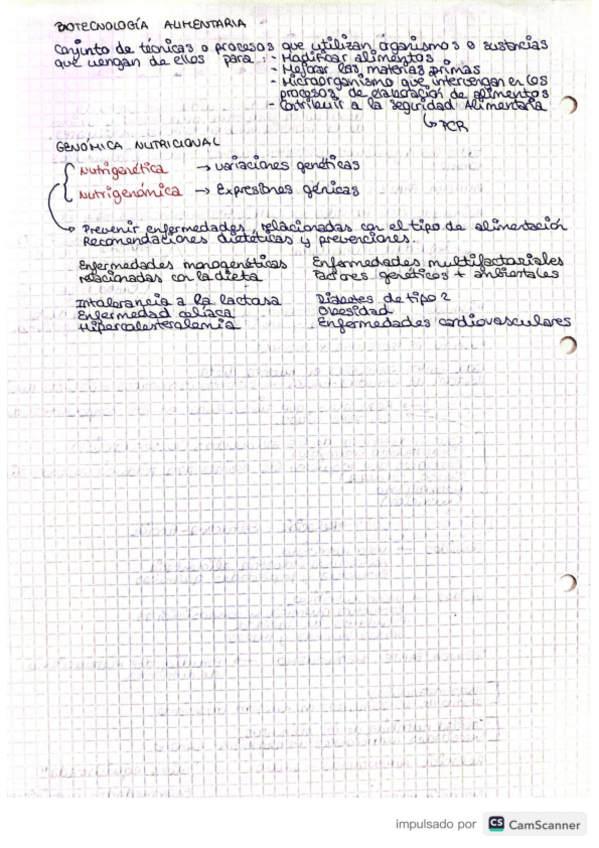 BIOTECNOLOGÍA ALIMENTARIA
Conjunto de técnicas o procesos que utilizan organismos o sustancias
que vengan de ellos para : - Modificar alimentos
- Mejorar las materias primas
- Microorganismo que intervengan en los
procesos de elaboración de alimentos
- Contribuir a la seguridad Alimentaria
↳ PCR
GENÓMICA NUTRICIONAL
Nutrigenética → variaciones genéticas
Nutrigenómica → Expresiones génicas
→ Prevenir enfermedades, relacionadas con el tipo de alimentación
Recomendaciones dietéticas y prevenciones.
Enfermedades monogenéticas
relacionadas con la dieta
Intolerancia a la lactosa
Enfermedad celíaca
Hipercolesterolemia
Enfermedades multifactoriales
Factores genéticos + ambientales
Diabetes de tipo 2
Obesidad
Enfermedades cardiovasculares
impulsado por CS CamScanner